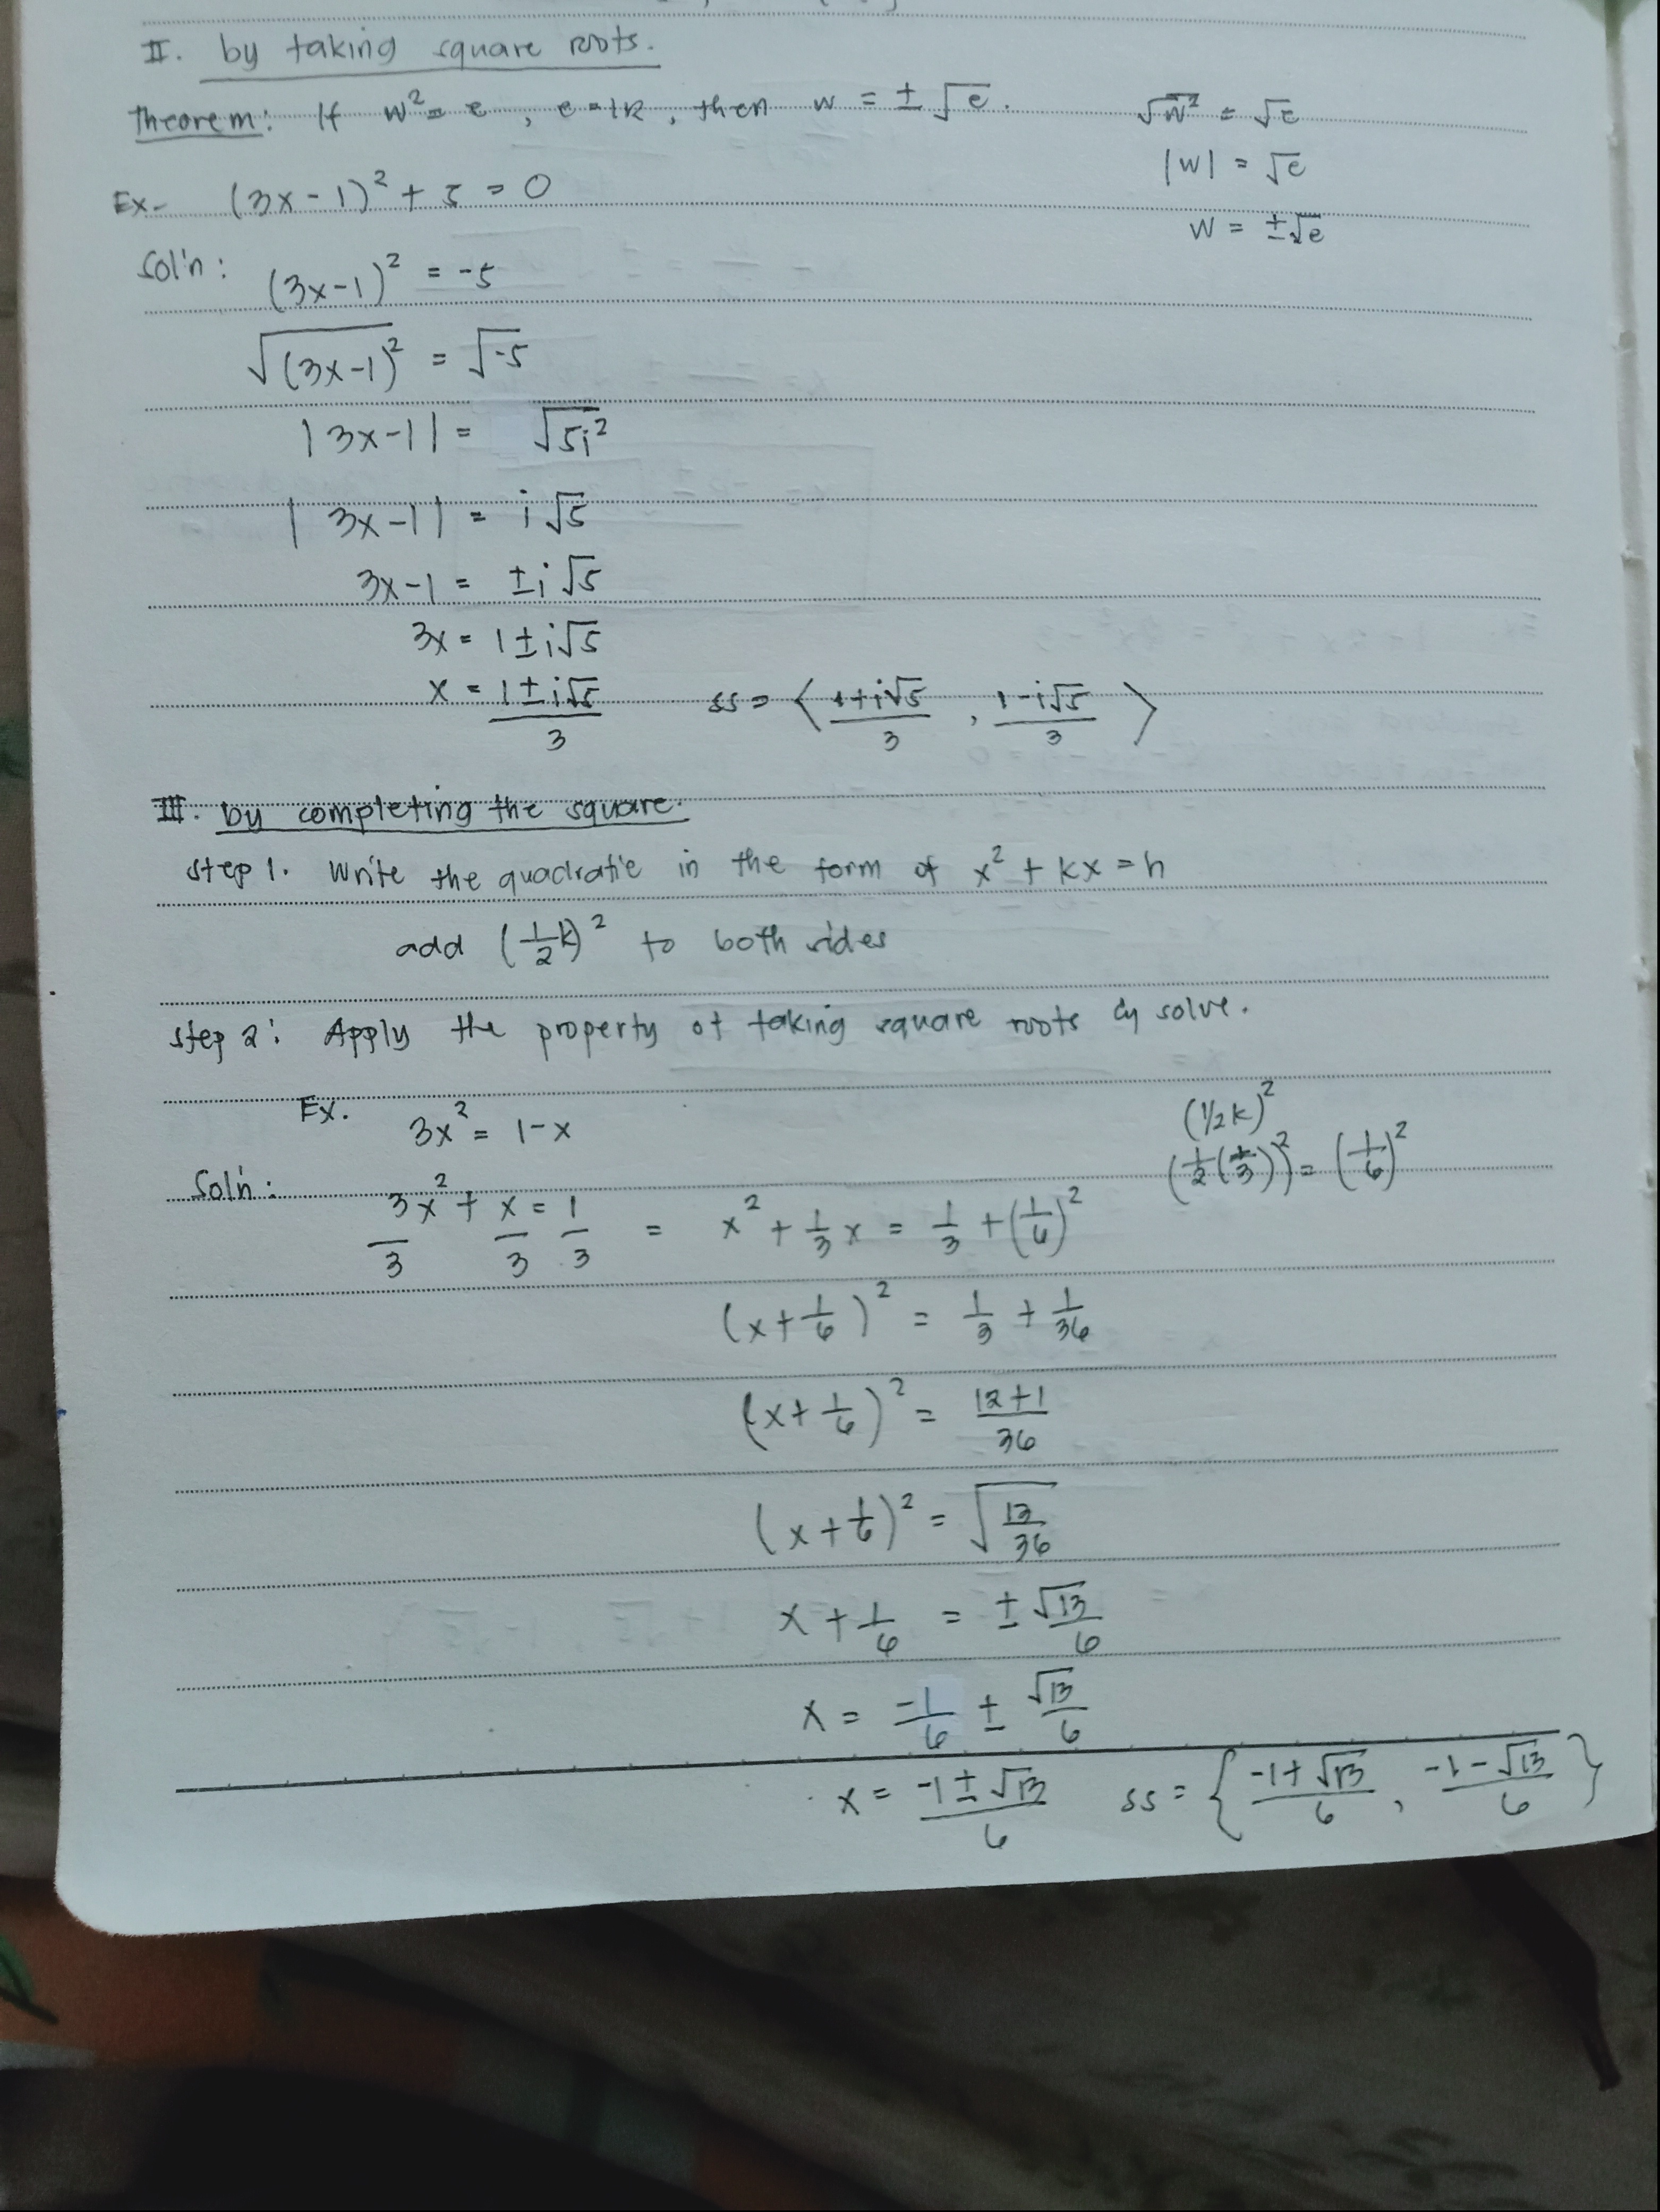 II. by taking square roots.
Theorem: If w² = e, e = IR, then w = ± √e.
√w² = √e
|w| = √e
w = ±√e
Ex- (3x-1)² + 5 = 0
Sol'n: (3x-1)² = -5
√(3x-1)² = √-5
|3x-1| = √5i²
|3x-1| = i√5
3x-1 = ±i√5
3x = 1±i√5
x = 1±i√5/3 ss = { 1+i√5/3, 1-i√5/3 }
III. by completing the square.
step 1. Write the quadratic in the form of x² + kx = h
add (1/2k)² to both sides
step 2: Apply the property of taking square roots & solve.
Ex. 3x² = 1-x
(1/2k)²
(1/2(1/3))² = (1/6)²
Sol'n: 3x²/3 + x/3 = 1/3 = x² + 1/3x = 1/3 + (1/6)²
(x+1/6)² = 1/3 + 1/36
(x+1/6)² = 12+1/36
(x+1/6)² = √13/36
x+1/6 = ±√13/6
x = -1/6 ± √13/6
x = -1±√13/6 ss = { -1+√13/6, -1-√13/6 }